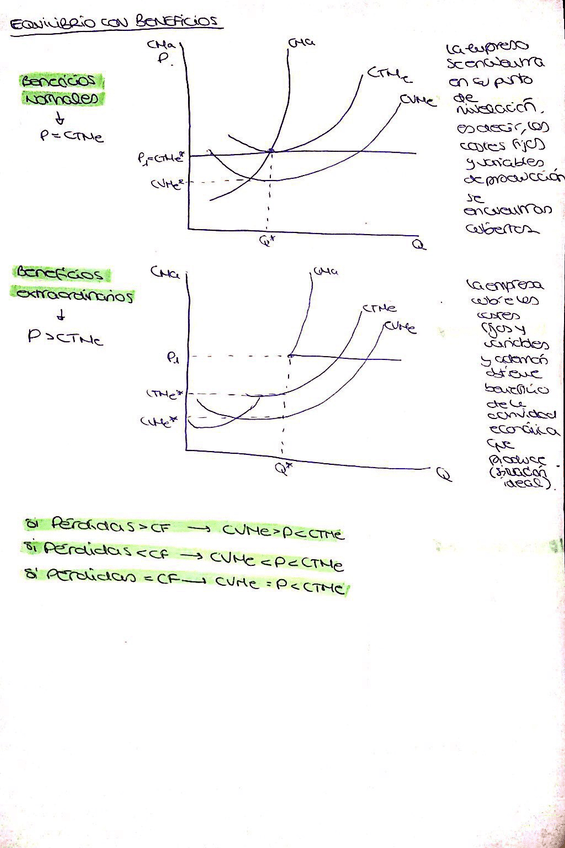 EQUILIBRIO CON BENEFICIOS
Beneficios
normales
↓
P=CTMe
CMa
P.
CMa
CTMe
CVMe
P₁=CTMe*
CVMe*
Q*
Q
La empresa
se encuentra
en su punto
de
nivelación,
es decir, los
costes fijos
y variables
de producción
se
encuentran
cubiertos
Beneficios
extraordinarios
↓
P>CTMe
CMa
CMa
CTMe
CVMe
P₁
CTMe*
CVMe*
Q*
Q
La empresa
cubre los
costes
fijos y
variables
y además
obtiene
beneficio
de la
actividad
económica
que
produce
(situación
ideal).
Si Pérdidas>CF → CVMe>P<CTMe
Si Pérdidas<CF → CVMe<P<CTMe
Si Pérdidas=CF → CVMe=P<CTMe